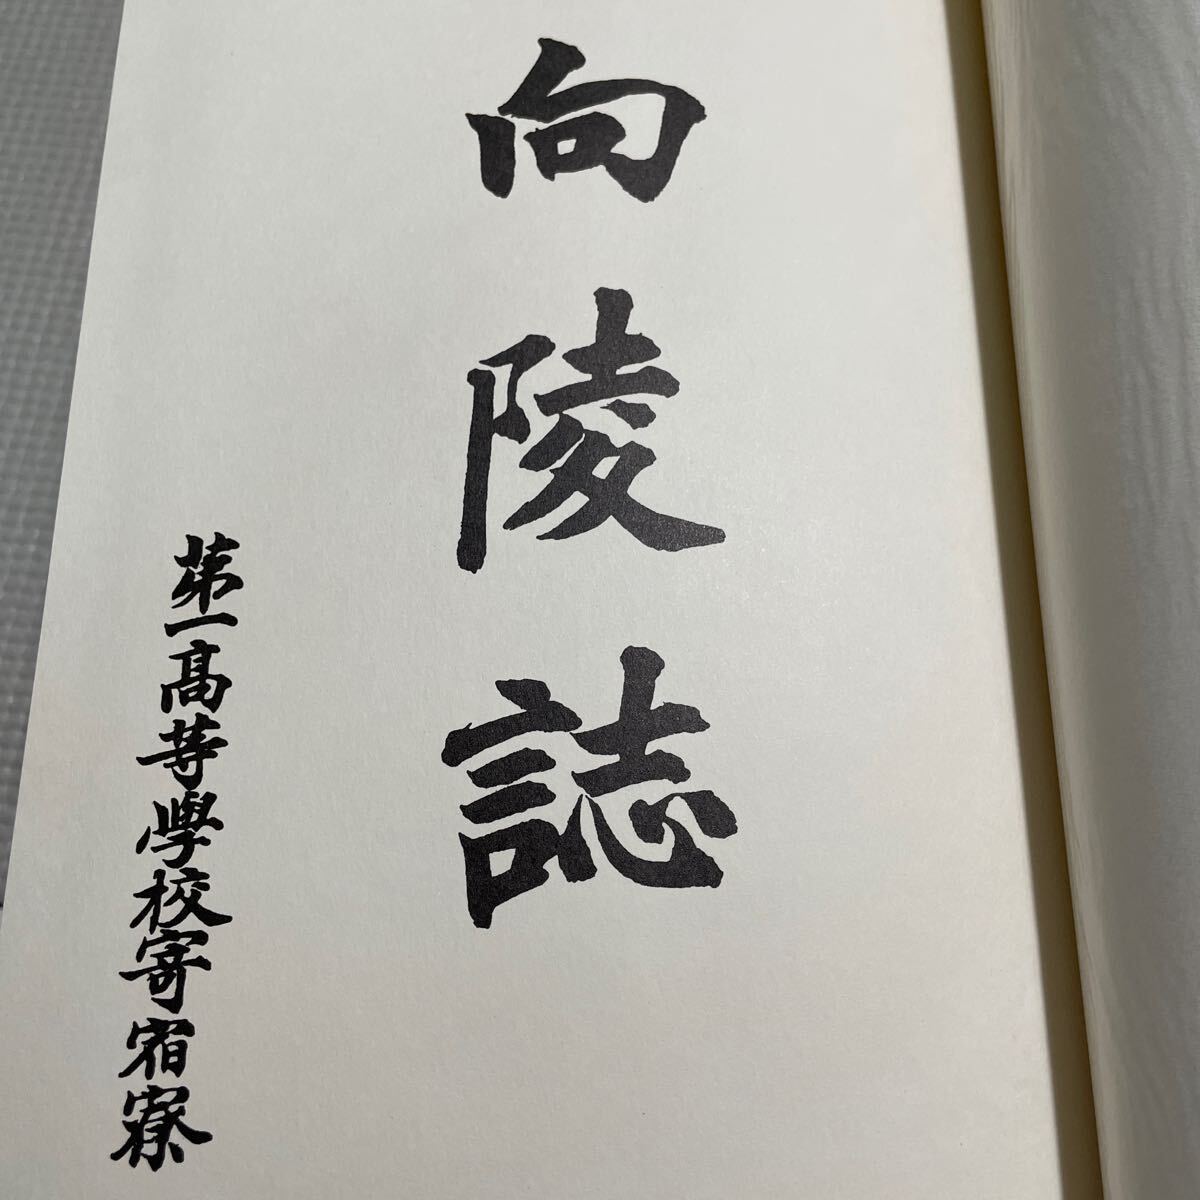 向陵誌
第一髙等學校寄宿寮